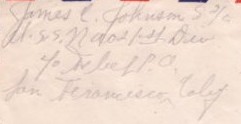 James C. Johnson S 2/c
U.S.S. Naos 1st Div
c/o Fleet P.O.
San Francisco, Calif